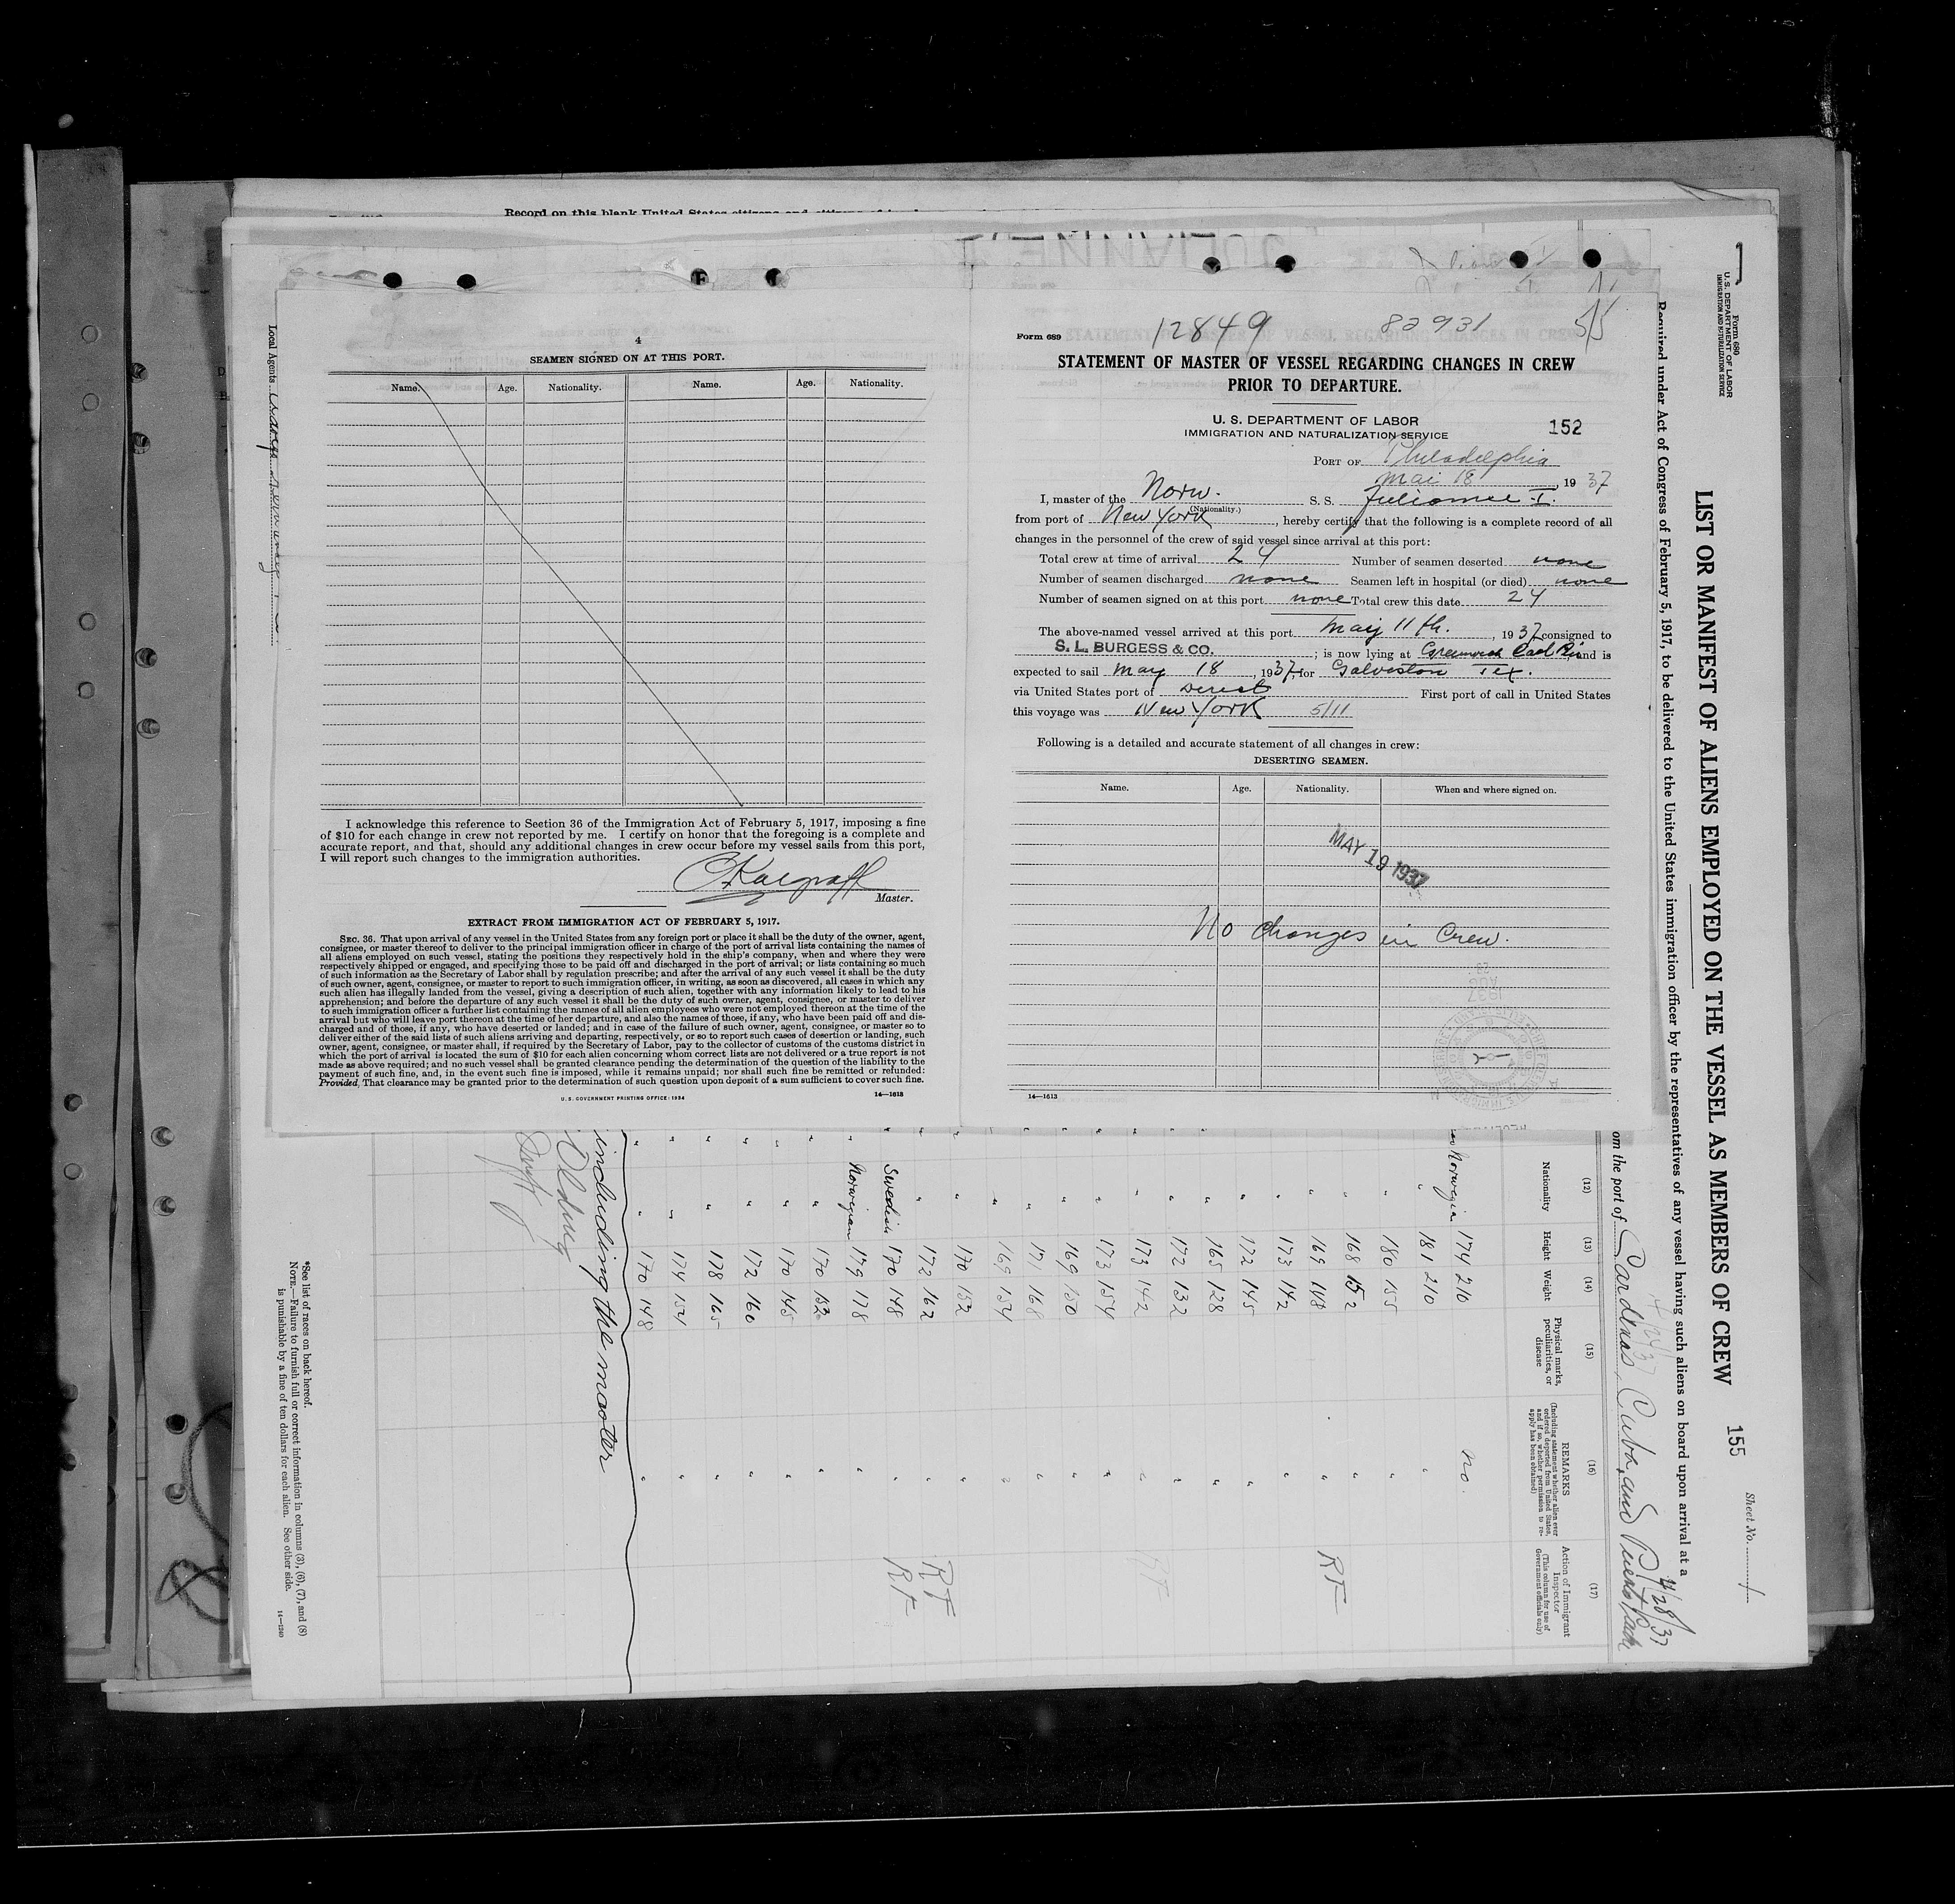 Record on this blank United States citizens and citizens of
4
SEAMEN SIGNED ON AT THIS PORT.
Name. Age. Nationality. Name. Age. Nationality.
I acknowledge this reference to Section 36 of the Immigration Act of February 5, 1917, imposing a fine
of $10 for each change in crew not reported by me. I certify on honor that the foregoing is a complete and
accurate report, and that, should any additional changes in crew occur before my vessel sails from this port,
I will report such changes to the immigration authorities.
Master.
EXTRACT FROM IMMIGRATION ACT OF FEBRUARY 5, 1917.
SEC. 36. That upon arrival of any vessel in the United States from any foreign port or place it shall be the duty of the owner, agent,
consignee, or master thereof to deliver to the principal immigration officer in charge of the port of arrival lists containing the names of
all aliens employed on such vessel, stating the positions they respectively hold in the ship's company, when and where they were
respectively shipped or engaged, and specifying those to be paid off and discharged in the port of arrival; or lists containing so much
of such information as the Secretary of Labor shall by regulation prescribe; and after the arrival of any such vessel it shall be the duty
of such owner, agent, consignee, or master to report to such immigration officer, in writing, as soon as discovered, all cases in which any
such alien has illegally landed from the vessel, giving a description of such alien, together with any information likely to lead to his
apprehension; and before the departure of any such vessel it shall be the duty of such owner, agent, consignee, or master to deliver
to such immigration officer a further list containing the names of all alien employees who were not employed thereon at the time of the
arrival but who will leave port thereon at the time of her departure, and also the names of those, if any, who have been paid off and dis-
charged and of those, if any, who have deserted or landed; and in case of the failure of such owner, agent, consignee, or master so to
deliver either of the said lists of such aliens arriving and departing, respectively, or so to report such cases of desertion or landing, such
owner, agent, consignee, or master shall, if required by the Secretary of Labor, pay to the collector of customs of the customs district in
which the port of arrival is located the sum of $10 for each alien concerning whom correct lists are not delivered or a true report is not
made as above required; and no such vessel shall be granted clearance pending the determination of the question of the liability to the
payment of such fine, and, in the event such fine is imposed, while it remains unpaid; nor shall such fine be remitted or refunded:
Provided, That clearance may be granted prior to the determination of such question upon deposit of a sum sufficient to cover such fine.
U. S. GOVERNMENT PRINTING OFFICE: 1934
14—1613
Form 689
12849 82931
STATEMENT OF MASTER OF VESSEL REGARDING CHANGES IN CREW
PRIOR TO DEPARTURE.
U. S. DEPARTMENT OF LABOR
IMMIGRATION AND NATURALIZATION SERVICE
152
PORT OF Philadelphia
Mai 18, 1937
I, master of the Norw. S. S. Julianne I.
(Nationality.)
from port of New York, hereby certify that the following is a complete record of all
changes in the personnel of the crew of said vessel since arrival at this port:
Total crew at time of arrival 24 Number of seamen deserted none
Number of seamen discharged none Seamen left in hospital (or died) none
Number of seamen signed on at this port none Total crew this date 24
The above-named vessel arrived at this port May 11th., 1937, consigned to
S. L. BURGESS & CO.; is now lying at Greenwich Coal Pier and is
expected to sail May 18, 1937, for Galveston Tex.
via United States port of Direct First port of call in United States
this voyage was New York 5/11
Following is a detailed and accurate statement of all changes in crew:
DESERTING SEAMEN.
Name. Age. Nationality. When and where signed on.
MAY 19 1937
No changes in Crew.
14—1613
Form 680
U. S. DEPARTMENT OF LABOR
IMMIGRATION AND NATURALIZATION SERVICE
LIST OR MANIFEST OF ALIENS EMPLOYED ON THE VESSEL AS MEMBERS OF CREW
155
Sheet No. 1
Required under Act of Congress of February 5, 1917, to be delivered to the United States immigration officer by the representatives of any vessel having such aliens on board upon arrival at a
om the port of Cardenas, Cuba, and Puerto Padre
4/28/37
(12) (13) (14) (15) (16) (17)
Nationality Height Weight
Physical marks, peculiarities, or disease
REMARKS
(Including statement whether alien ever ordered deported from United States, and if so, whether permission to reapply has been obtained)
Action of Immigrant Inspector
(This column for use of Government officials only)
Norwegian 174 210 no.
" 181 210 "
" 180 155 "
" 168 152 "
" 169 148 " RF
" 173 142
" 172 145 "
" 165 128 "
" 172 132 "
" 173 142 " RF
" 173 154 "
" 169 150 "
" 171 168 "
" 169 154 "
" 170 152 "
" 172 162 " RF
Swedish 170 148 " RF
Norwegian 179 178 "
" 170 152 "
" 170 145 "
" 172 160 "
" 178 165 "
" 174 154 "
" 170 148 "
including the master
Local Agents
*See list of races on back hereof.
NOTE.—Failure to furnish full or correct information in columns (3), (6), (7), and (8)
is punishable by a fine of ten dollars for each alien. See other side.
14—1240